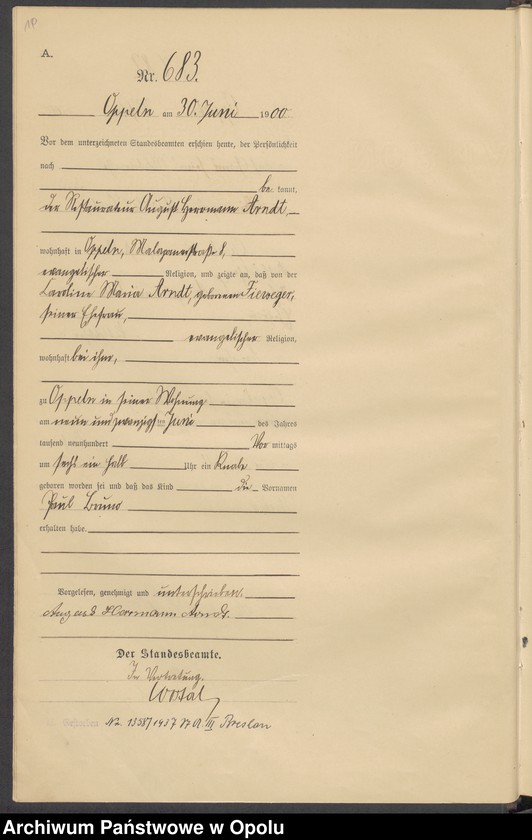 A.
Nr. 683.
Oppeln am 30. Juni 1900
Vor dem unterzeichneten Standesbeamten erschien heute, der Persönlichkeit
nach
be kannt,
der Restaurateur August Herrmann Arndt,
wohnhaft in Oppeln, Malapanerstraße 8,
evangelischer Religion, und zeigte an, daß von der
Caroline Maria Arndt, geborenen
seiner Ehefrau,
evangelischer Religion,
wohnhaft bei ihm,
zu Oppeln in seiner Wohnung
am neun und zwanzigsten Juni des Jahres
tausend neunhundert Vor mittags
um sechs ein halb Uhr ein Knabe
geboren worden sei und daß das Kind die Vornamen
Paul Bruno
erhalten habe.
Vorgelesen, genehmigt und unterschrieben.
August Herrmann Arndt.
Der Standesbeamte.
In Vertretung.
Gestorben Nr. 1358/1937 St. A. III Breslau
Archiwum Państwowe w Opolu